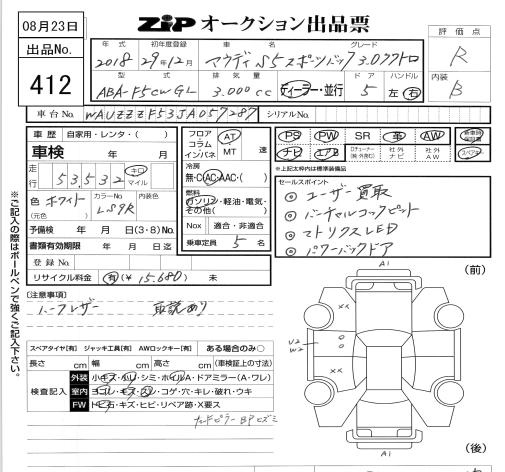 08月23日
ZIP オークション出品票
評価点
出品No.
412
年式
初年度登録
車名
グレード
2018
29年12月
アウディ S5スポーツバック 3.0クワトロ
R
型式
排気量
ドア
ハンドル
内装
ABA-F5CWGL
3.000cc
ディーラー・並行
5
左 右
B
車台No.
WAUZZZF53JA057287
シリアルNo.
車歴
自家用・レンタ・( )
車検 年 月
走行
53,532
キロ
マイル
色
ホワイト
(元色)
カラーNo.
LS9R
内装色
予備検 年 月 日(3・8)No.
書類有効期限 年 月 日迄
登録No.
リサイクル料金 有(¥ 15.680) 未
フロア
コラム
インパネ
AT
MT
速
冷房
無・C・AC・AAC・( )
燃料
ガソリン・軽油・電気・
その他( )
Nox
適合・非適合
乗車定員 5 名
PS
PW
SR
革
AW
ナビ
エアB
TVチューナー
社外ナビ
社外AW
スペアキー
※上記太枠内標準装備品
セールスポイント
◎ ユーザー買取
◎ バーチャルコックピット
◎ マトリクスLED
◎ パワーバックドア
[注意事項]
ハーフレザー 取説あり
※ご記入の際はボールペンで強くご記入下さい。
スペアタイヤ[有] ジャッキ工具[有] AWロックキー[有] ある場合のみ○
長さ cm 幅 cm 高さ cm (車検証上の寸法)
検査記入
外装
小キズ・小凹・シミ・ホイルA・ドアミラー(A・ワレ)
室内
ヨゴレ・キズ・スレ・コゲ・穴・キレ・破れ・ウキ
FW
トビ石・キズ・ヒビ・リペア跡・X要ス
A1
(前)
××
U2
W2
××
A1
(後)